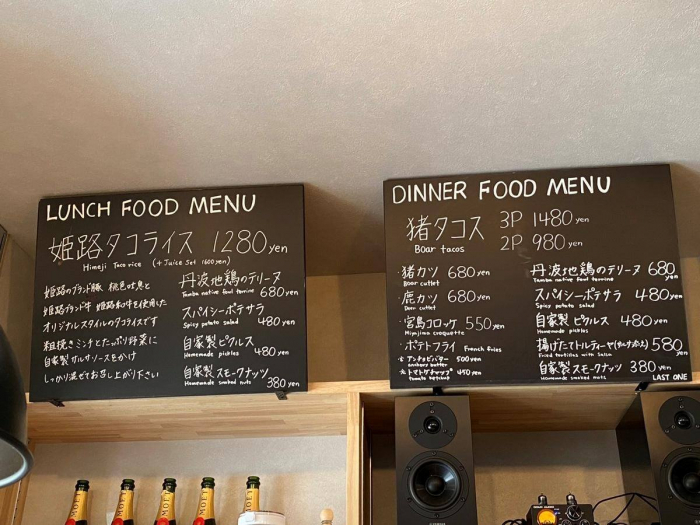 LUNCH FOOD MENU
姫路タコライス 1280yen
Himeji Taco rice (+Juice Set 1600yen)
姫路のブランド豚 桃色吐息と
姫路ブランド牛 姫路和牛を使用した
オリジナルスタイルのタコライスです
粗挽きミンチとたっぷり野菜に
自家製サルサソースをかけ
しっかり混ぜてお召し上がり下さい
丹波地鶏のテリーヌ
Tamba native fowl terrine 680yen
スパイシーポテサラ
Spicy potato salad 480yen
自家製ピクルス
Homemade pickles 480yen
自家製スモークナッツ
Homemade smoked nuts 380yen
DINNER FOOD MENU
猪タコス 3P 1480yen
Boar tacos 2P 980yen
猪カツ 680yen
Boar cutlet
鹿カツ 680yen
Deer cutlet
・宮島コロッケ 550yen
Miyajima croquette
・ポテトフライ French fries
アンチョビバター 500yen
anchovy butter
トマトケチャップ 450yen
tomato ketchup
丹波地鶏のテリーヌ 680yen
Tamba native fowl terrine
スパイシーポテサラ 480yen
Spicy potato salad
自家製ピクルス 480yen
Homemade pickles
揚げたてトルティーヤ(サルサ付) 580yen
Fried tortillas with salsa
自家製スモークナッツ 380yen
Homemade smoked nuts
LAST ONE
MOET
MOET
MOET
MOET
MOET
YAMAHA